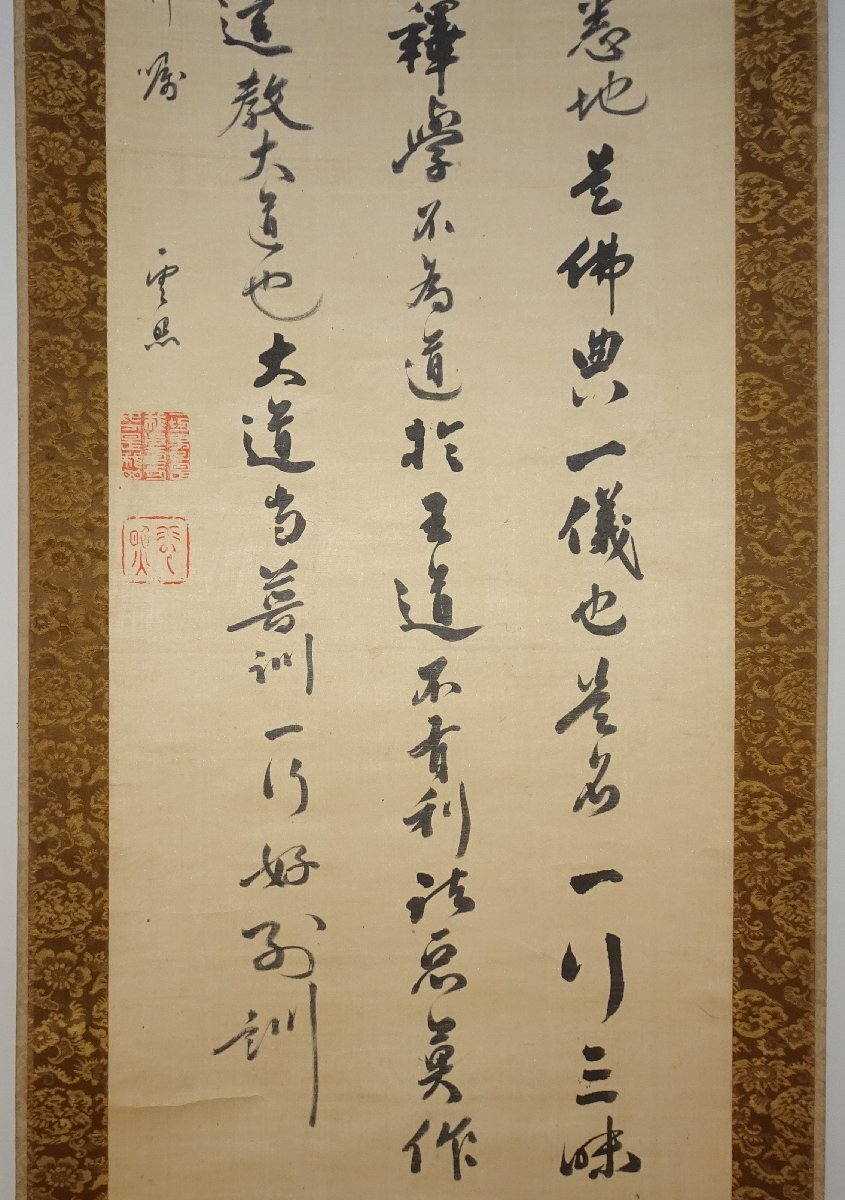 悉地是佛典一儀也是名一行三昧
釋學不為道於王道不有利諸惡莫作
達教大道也大道当普訓一行好別訓
囑
雲照